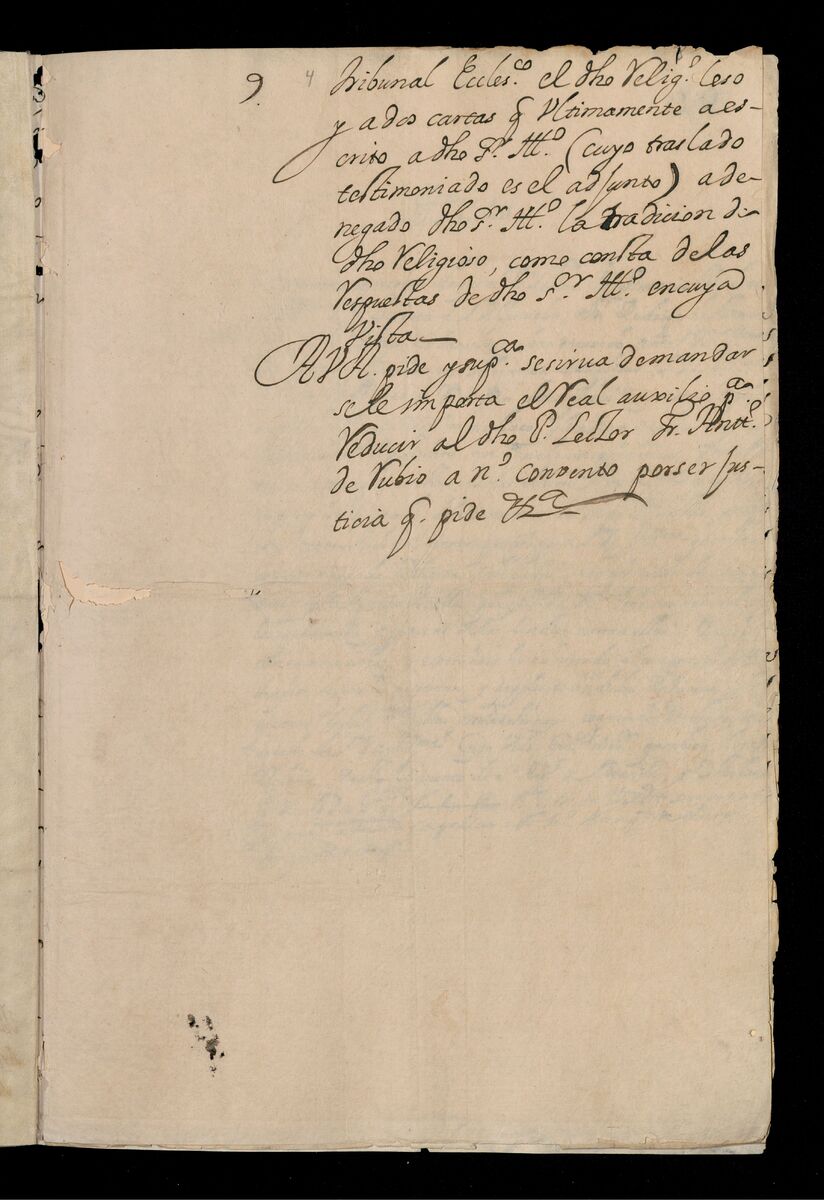 9. 4
tribunal Eccles.co el dho Relig.o leso
y a dos cartas q Ultimamente a es-
crito a dho S.r Ill.o (cuyo traslado
testimoniado es el adjunto) a de-
negado dho s.r Ill.o la tradicion de
dho Religioso, como consta de las
Respuestas de dho s.r Ill.o en cuya
Vista—
A V A. pide y sup.ca se sirua de mandar
se le imparta el Real auxilio p.a
Reducir al dho P. Lector Fr. Antt.o
de Rubio a n.o convento por ser Jus-
ticia q. pide &a